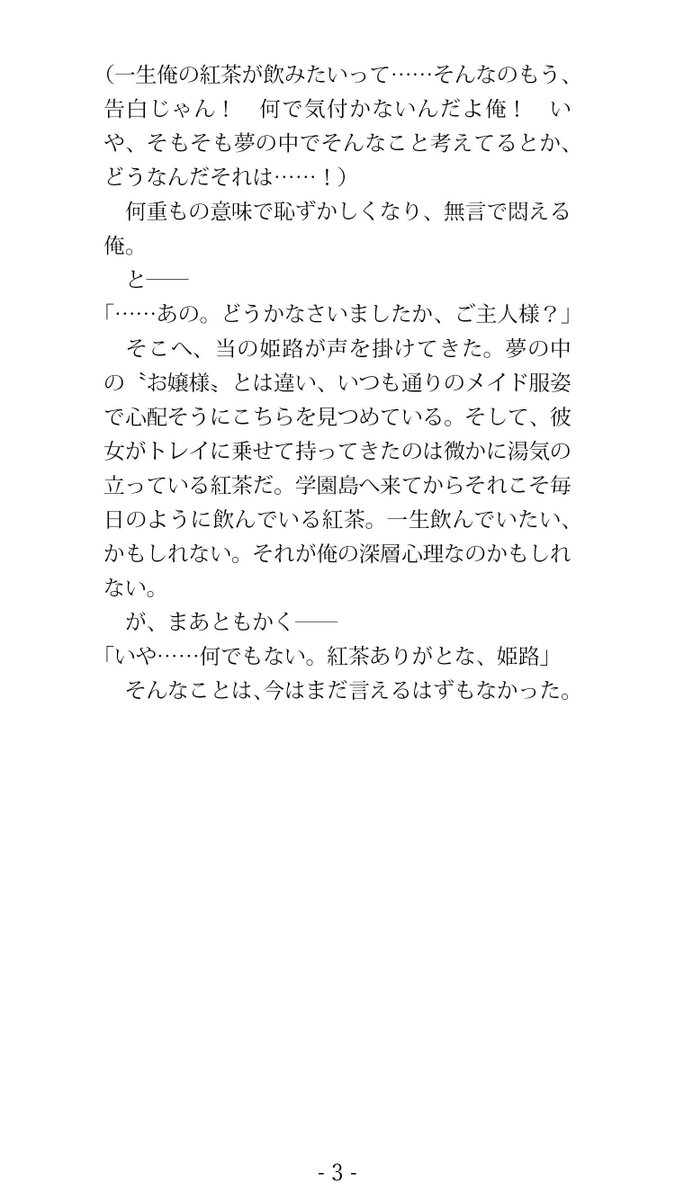 (一生俺の紅茶が飲みたいって……そんなのもう、
告白じゃん！　何で気付かないんだよ俺！　い
や、そもそも夢の中でそんなこと考えてるとか、
どうなんだそれは……！）
　何重もの意味で恥ずかしくなり、無言で悶える
俺。
　と――
「……あの。どうかなさいましたか、ご主人様？」
　そこへ、当の姫路が声を掛けてきた。夢の中
の〝お嬢様〟とは違い、いつも通りのメイド服姿
で心配そうにこちらを見つめている。そして、彼
女がトレイに乗せて持ってきたのは微かに湯気の
立っている紅茶だ。学園島へ来てからそれこそ毎
日のように飲んでいる紅茶。一生飲んでいたい、
かもしれない。それが俺の深層心理なのかもしれ
ない。
　が、まあともかく――
「いや……何でもない。紅茶ありがとな、姫路」
　そんなことは、今はまだ言えるはずもなかった。
- 3 -